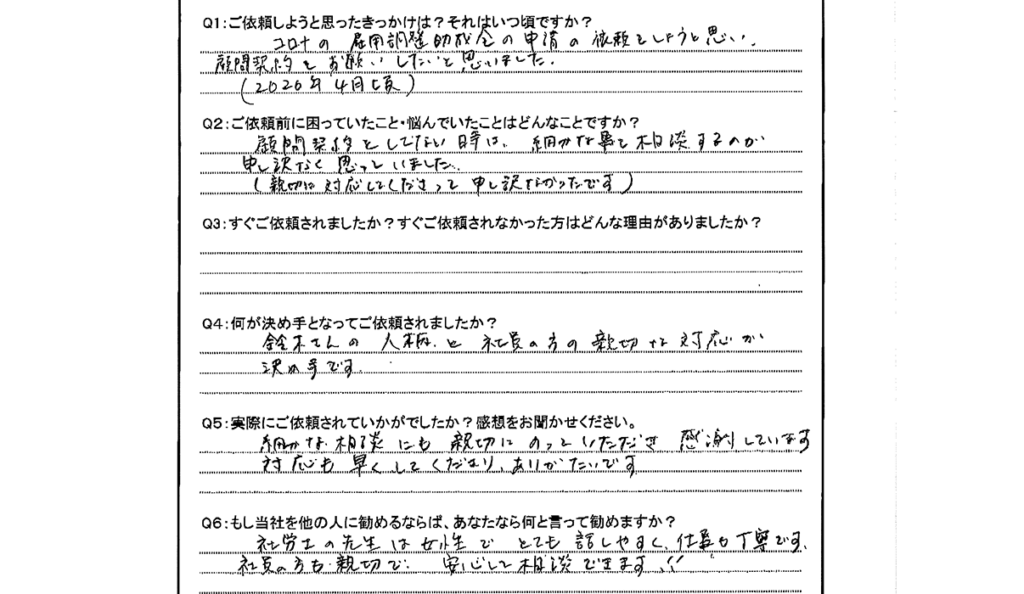 Q1:ご依頼しようと思ったきっかけは？それはいつ頃ですか？
コロナの雇用調整助成金の申請の依頼をしようと思い、
顧問契約をお願いしたいと思いました。
(2020年4月頃)
Q2:ご依頼前に困っていたこと・悩んでいたことはどんなことですか？
顧問契約をしてない時は、細かな事を相談するのが
申し訳なく思っていました。
(親切に対応してくださって申し訳なかったです)
Q3:すぐご依頼されましたか？すぐご依頼されなかった方はどんな理由がありましたか？
Q4:何が決め手となってご依頼されましたか？
鈴木さんの人柄と社員の方の親切な対応が
決め手です。
Q5:実際にご依頼されていかがでしたか？感想をお聞かせください。
細かな相談にも親切にのっていただき感謝しています
対応も早くしてくださり、ありがたいです
Q6:もし当社を他の人に勧めるならば、あなたなら何と言って勧めますか？
社労士の先生は女性でとても話しやすく、仕事も丁寧です。
社員の方も親切で、安心して相談できます!!